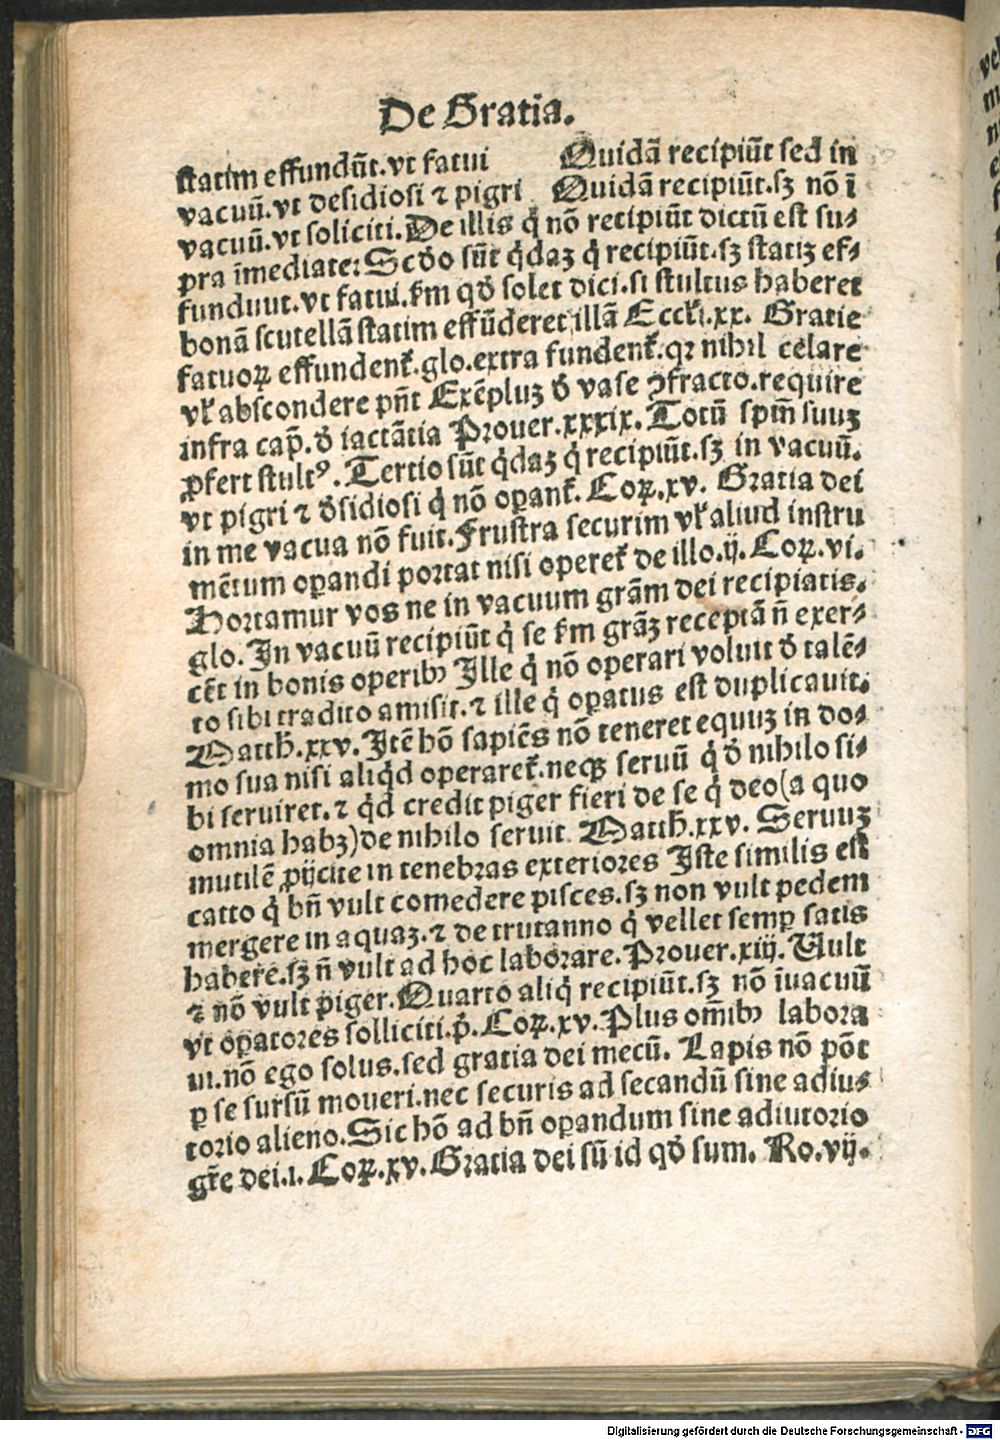 De Gratia.
statim effundūt.vt fatui Quidā recipiūt sed in
vacuū.vt desidiosi ⁊ pigri Quidā recipiūt.sꝫ nō ī
vacuū.vt soliciti.De illis q̇ nō recipiūt dictū est su⸗
pra īmediate:Scd̕o sūt q̇daꝫ q̇ recipiūt.sꝫ statiꝫ ef⸗
fundunt.vt fatui.k̄m qd̕ solet dici.si stultus haberet
bonā scutellā statim effūderet illā Eccĺi.xx. Gratie
fatuoꝝ effundenť.glo.extra fundenť.qꝛ nihil celare
vĺ abscondere pn̄t Exēpluꝫ d̕ vase ꝯfracto.require
infra cap̄. d̕ iactātia Prouer.xxxix.Totū spm̄ suuꝫ
ꝓfert stultꝰ. Tertio sūt q̇daꝫ q̇ recipiūt.sꝫ in vacuū.
vt pigri ⁊ d̕sidiosi q̇ nō oꝑanť. Coꝝ.xv. Gratia dei
in me vacua nō fuit.Frustra securim vĺ aliud instru
mētum oꝑandi portat nisi opereť de illo.ij.Coꝝ.vi.
Hortamur vos ne in vacuum grām dei recipiatis.
glo.In vacuū recipiūt q̇ se k̄m grāꝫ receptā n̄ exer⸗
cēt in bonis operibꝰ Ille q̇ nō operari voluit d̕ talē⸗
to sibi tradito amisit.⁊ ille q̇ oꝑatus est duplicauit.
Matth̄.xxv.Itē hō sapiēs nō teneret equuꝫ in do⸗
mo sua nisi aliq̇d operareť.neqꝫ seruū q̇ d̕ nihilo si⸗
bi seruiret.⁊ q̇d credit piger fieri de se q̇ deo(a quo
omnia habꝫ)de nihilo seruit Matth̄.xxv. Seruuꝫ
inutilē ꝓijcite in tenebras exteriores Iste similis est
catto q̇ bn̄ vult comedere pisces.sꝫ non vult pedem
mergere in aquaꝫ.⁊ de trutanno q̇ vellet semꝑ satis
habere.sꝫ n̄ vult ad hoc laborare.Prouer.xiij.Vult
⁊ nō vult piger.Quarto aliq̇ recipiūt.sꝫ nō īuacuū
vt oꝑatores solliciti.p̄. Coꝝ.xv.Plus om̄ibꝰ labora
ui.nō ego solus.sed gratia dei mecū. Lapis nō pōt
ꝑ se sursū moueri.nec securis ad secandū sine adiu⸗
torio alieno.Sic hō ad bn̄ oꝑandum sine adiutorio
gr̄e dei.i.Coꝝ.xv.Gratia dei sū id qd̕ sum. Ro.vij.
Digitalisierung gefördert durch die Deutsche Forschungsgemeinschaft - DFG